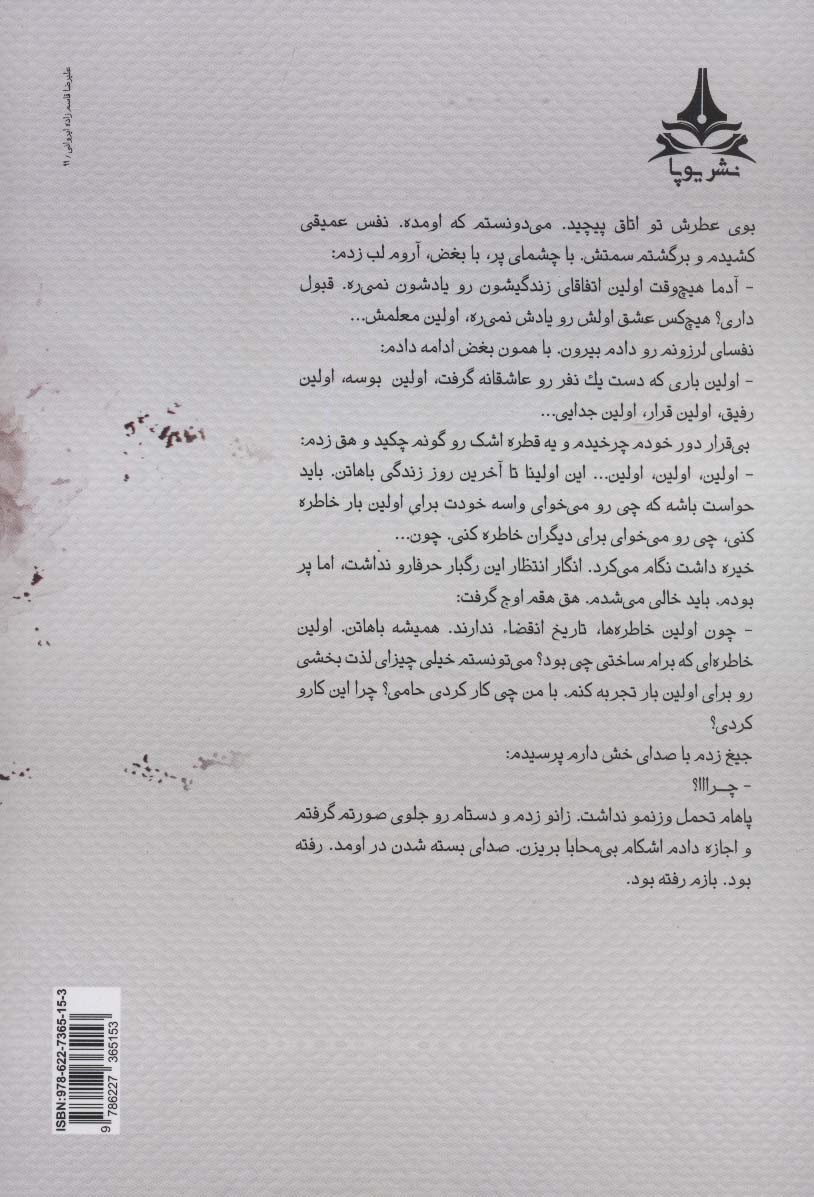 علیرضا قاسم زاده ایروانی / ۹۹
نشر یوپا
بوی عطرش تو اتاق پیچید. می‌دونستم که اومده. نفس عمیقی
کشیدم و برگشتم سمتش. با چشمای پر، با بغض، آروم لب زدم:
- آدما هیچ‌وقت اولین اتفاقای زندگیشون رو یادشون نمی‌ره. قبول
داری؟ هیچ‌کس عشق اولش رو یادش نمی‌ره، اولین معلمش...
نفسای لرزونم رو دادم بیرون. با همون بغض ادامه دادم:
- اولین باری که دست یك نفر رو عاشقانه گرفت، اولین بوسه، اولین
رفیق، اولین قرار، اولین جدایی...
بی‌قرار دور خودم چرخیدم و یه قطره اشک رو گونم چکید و هق زدم:
- اولین، اولین، اولین... این اولینا تا آخرین روز زندگی باهاتن. باید
حواست باشه که چی رو می‌خوای واسه خودت برای اولین بار خاطره
کنی، چی رو می‌خوای برای دیگران خاطره کنی. چون...
خیره داشت نگام می‌کرد. انگار انتظار این رگبار حرفارو نداشت، اما پر
بودم. باید خالی می‌شدم. هق هقم اوج گرفت:
- چون اولین خاطره‌ها، تاریخ انقضاء ندارند. همیشه باهاتن. اولین
خاطره‌ای که برام ساختی چی بود؟ می‌تونستم خیلی چیزای لذت بخشی
رو برای اولین بار تجربه کنم. با من چی کار کردی حامی؟ چرا این کارو
کردی؟
جیغ زدم با صدای خش دارم پرسیدم:
- چــرااا؟
پاهام تحمل وزنمو نداشت. زانو زدم و دستام رو جلوی صورتم گرفتم
و اجازه دادم اشکام بی‌محابا بریزن. صدای بسته شدن در اومد. رفته
بود. بازم رفته بود.
ISBN:978-622-7365-15-3
9 786227 365153